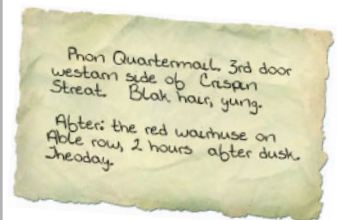 Phon Quartermail. 3rd door
westarn side of Crispin
Streat. Blak hair, yung.
After: the red wairhuse on
Able row, 2 hours after dusk.
Theoday.